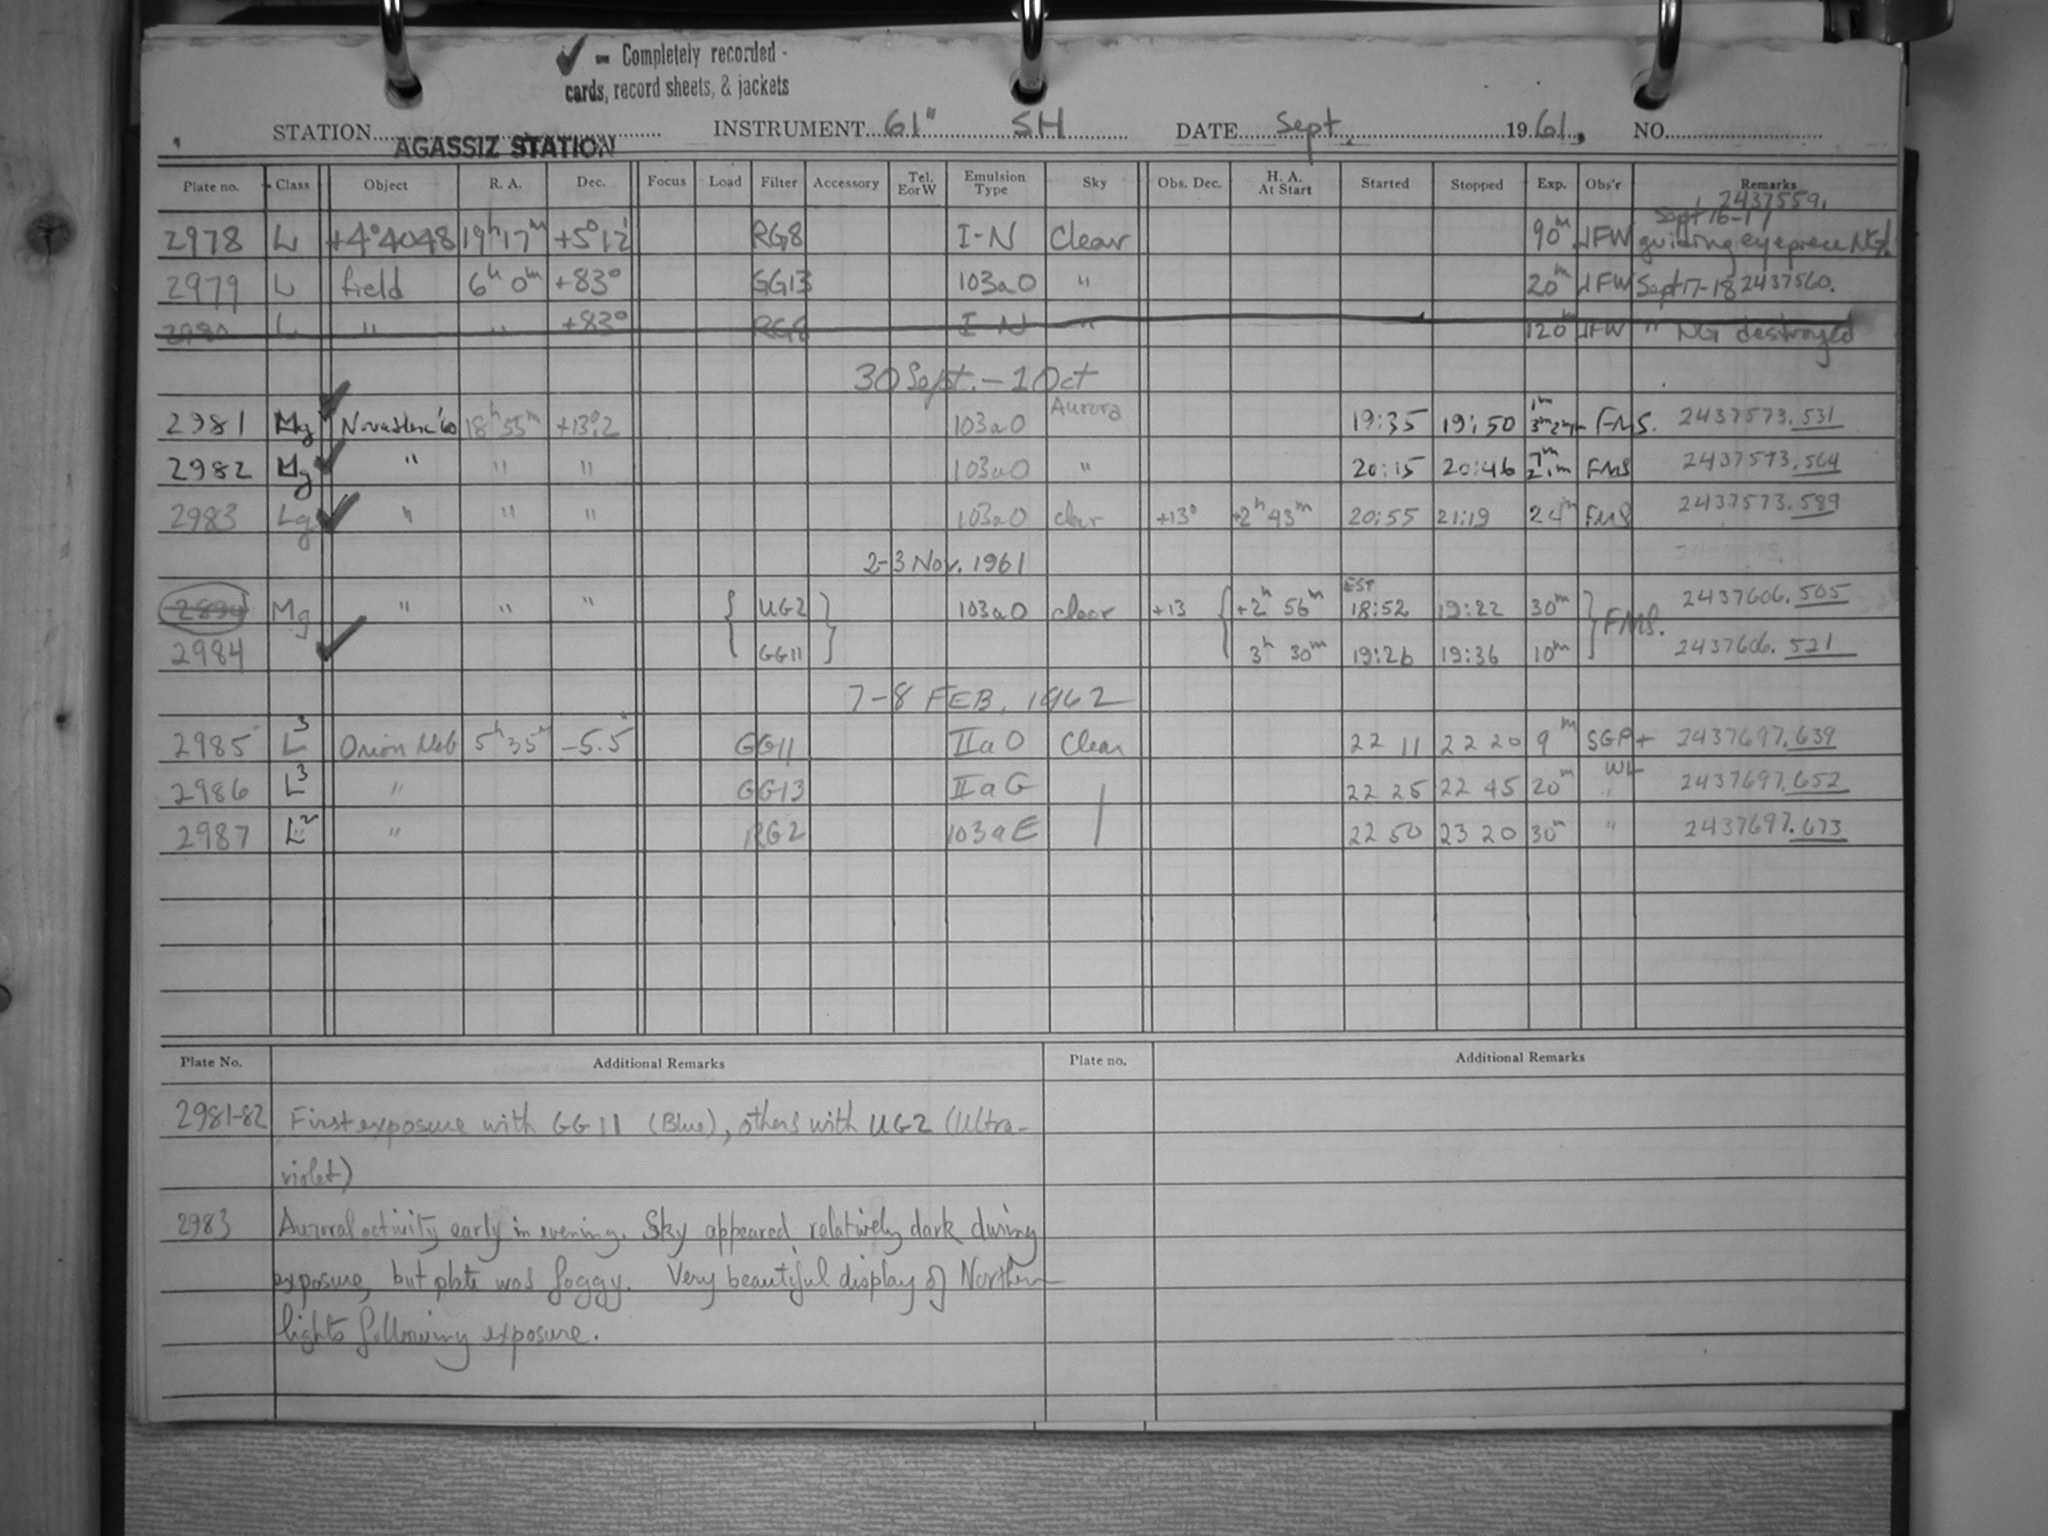 ✓ - Completely recorded -
cards, record sheets, & jackets
STATION AGASSIZ STATION INSTRUMENT 61" SH DATE Sept. 1961. NO.
Plate no. Class Object R. A. Dec. Focus Load Filter Accessory Tel. E or W Emulsion Type Sky Obs. Dec. H. A. At Start Started Stopped Exp. Obs'r Remarks
2437559.
Sept 16-17
2978 L +4°4048 19h 17m +5°12' RG8 I-N Clear 90m JFW guiding eyepiece NG!
2979 L field 6h 0m +83° GG13 103aO " 20m JFW Sept 17-18 2437560.
2980 L " " +83° RG8 I-N " 120m JFW " NG destroyed
30 Sept. - 1 Oct
2981 Mg ✓ 18h 55m +13°.2 103aO Aurora 19:35 19:50 FMS. 2437573.531
2982 Mg ✓ " " " 103aO " 20:15 20:46 FMS 2437573.564
2983 Lg ✓ " " " 103aO clear +13° +2h 43m 20:55 21:19 24m FMS 2437573.589
2-3 Nov. 1961
2894 Mg " " " { UG2 } 103aO clear +13 { +2h 56m EST 18:52 19:22 30m } FMS. 2437606.505
2984 ✓ GG11 3h 30m 19:26 19:36 10m 2437606.521
7-8 FEB. 1962
2985 L3 Orion Neb 5h 35m -5.5° GG11 IIaO Clear 22 11 22 20 9m SGP + 2437697.639
2986 L3 " GG13 IIaG | 22 25 22 45 20m WL " 2437697.652
2987 L2 " RG2 103aE | 22 50 23 20 30m " 2437697.673
Plate No. Additional Remarks Plate no. Additional Remarks
2981-82 First exposure with GG11 (Blue), others with UG2 (Ultra-
violet)
2983 Auroral activity early in evening. Sky appeared relatively dark during
exposure, but plate was foggy. Very beautiful display of Northern
lights following exposure.